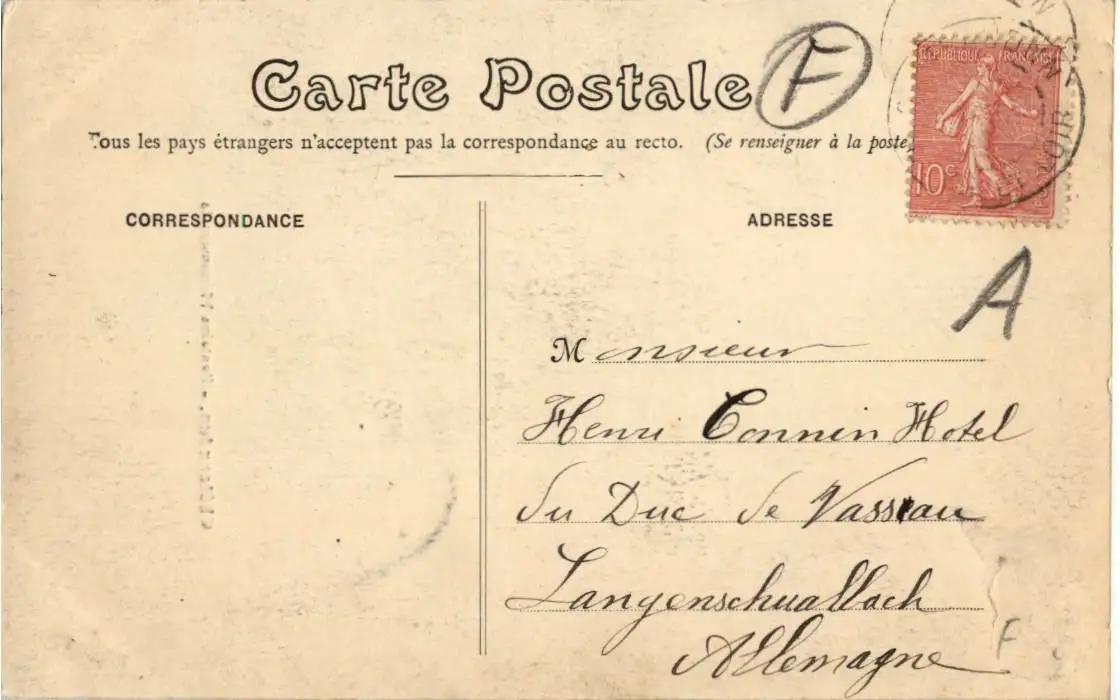 Carte Postale
F
Tous les pays étrangers n'acceptent pas la correspondance au recto. (Se renseigner à la poste
REPUBLIQUE FRANÇAISE
10c
CORRESPONDANCE
ADRESSE
A
Monsieur
Henri Connin Hotel
du Duc de Vassau
Langenschuallach
Allemagne
F